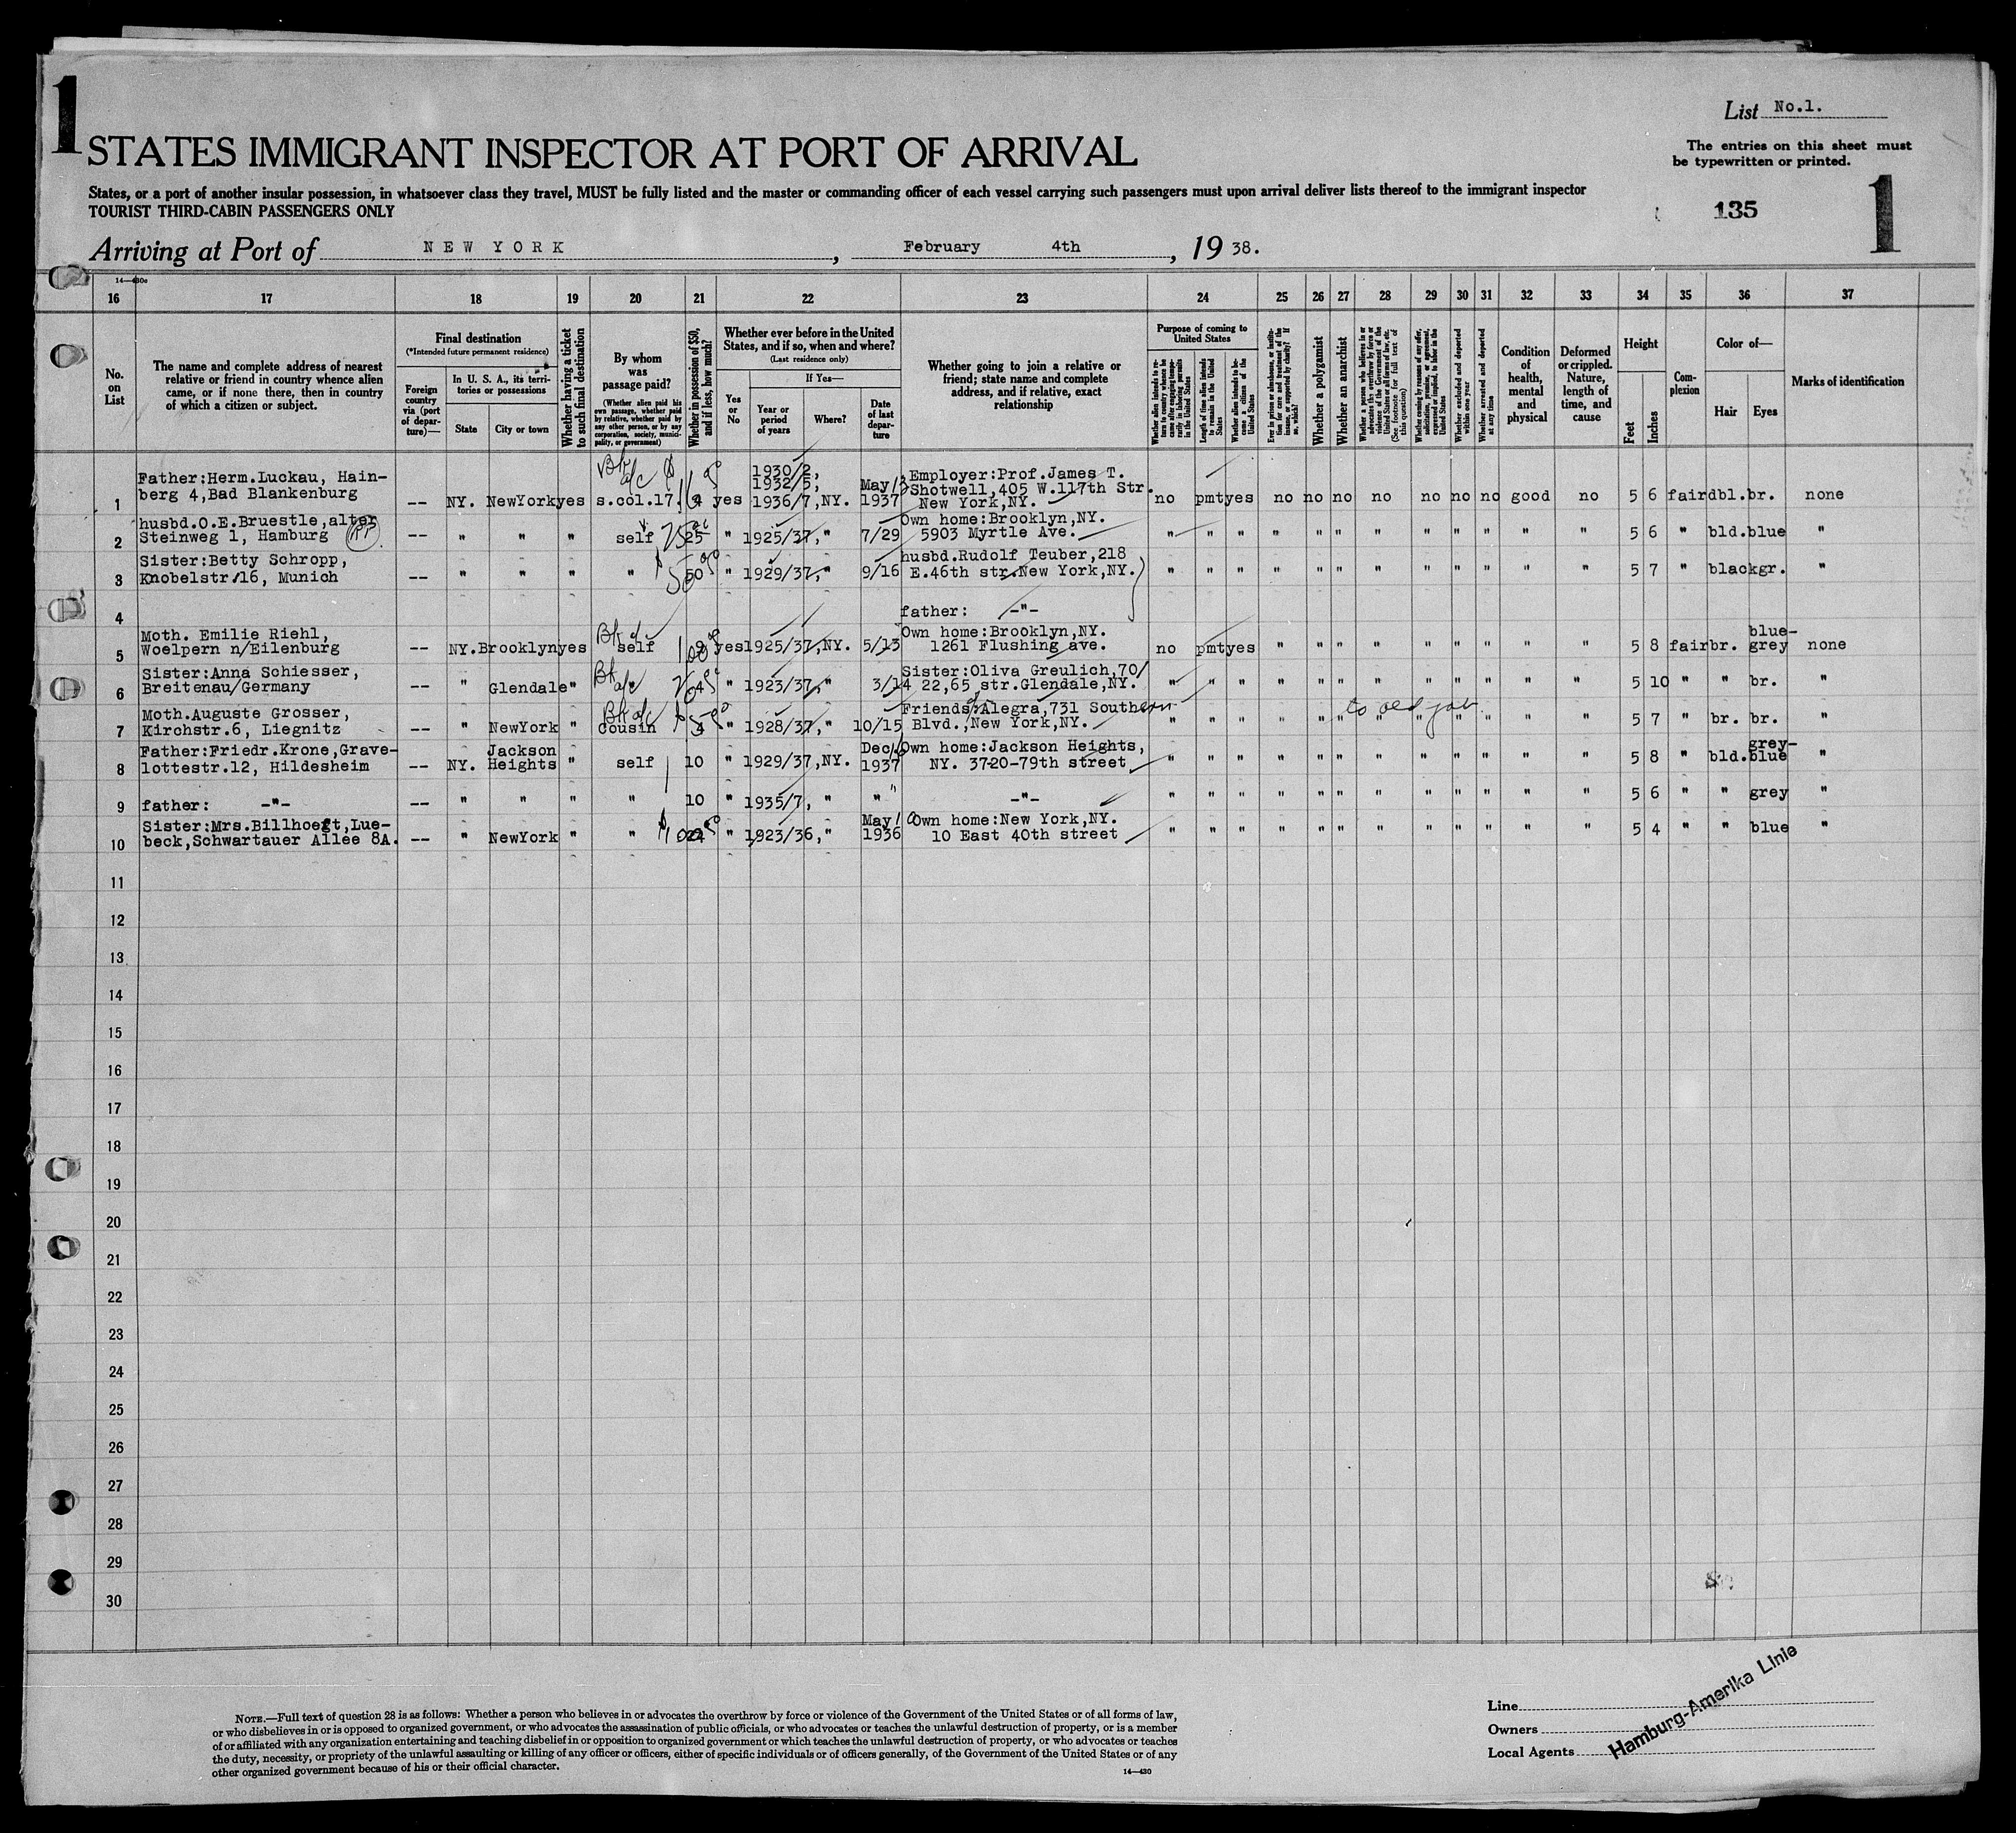 1
List No.1.
STATES IMMIGRANT INSPECTOR AT PORT OF ARRIVAL
The entries on this sheet must
be typewritten or printed.
States, or a port of another insular possession, in whatsoever class they travel, MUST be fully listed and the master or commanding officer of each vessel carrying such passengers must upon arrival deliver lists thereof to the immigrant inspector
TOURIST THIRD-CABIN PASSENGERS ONLY
135
1
Arriving at Port of NEW YORK, February 4th, 1938.
16 17 18 19 20 21 22 23 24 25 26 27 28 29 30 31 32 33 34 35 36 37
No. on List
The name and complete address of nearest relative or friend in country whence alien came, or if none there, then in country of which a citizen or subject.
Final destination
(*Intended future permanent residence)
Foreign country via (port of departure)—
In U. S. A., its territories or possessions
State
City or town
Whether having a ticket to such final destination
By whom was passage paid?
(Whether alien paid his own passage, whether paid by relative, whether paid by any other person, or by any corporation, society, municipality, or government)
Whether in possession of $50, and if less, how much?
Whether ever before in the United States, and if so, when and where?
(Last residence only)
Yes or No
If Yes—
Year or period of years
Where?
Date of last departure
Whether going to join a relative or friend; state name and complete address, and if relative, exact relationship
Purpose of coming to United States
Whether alien intends to return to country whence he came after engaging temporarily in laboring pursuits in the United States
Length of time alien intends to remain in the United States
Whether alien intends to become a citizen of the United States
Ever in prison or almshouse, or institution for care and treatment of the insane, or supported by charity? If so, which?
Whether a polygamist
Whether an anarchist
Whether a person who believes in or advocates the overthrow by force or violence of the Government of the United States or all forms of law, etc. (See footnote for full text of this question)
Whether coming by reason of any offer, solicitation, promise, or agreement, expressed or implied, to labor in the United States
Whether excluded and deported within one year
Whether arrested and deported at any time
Condition of health, mental and physical
Deformed or crippled. Nature, length of time, and cause
Height
Feet
Inches
Complexion
Color of—
Hair
Eyes
Marks of identification
1 Father:Herm.Luckau, Hain-
berg 4,Bad Blankenburg -- NY. NewYork yes s.col.17. yes 1930/2, 1932/5, 1936/7,NY. May 1937 Employer:Prof.James T.
Shotwell,405 W.117th Str.
New York,NY. no pmt yes no no no no no no no good no 5 6 fair dbl. br. none
2 husbd.O.E.Bruestle,alter
Steinweg 1, Hamburg -- " " " self 25 " 1925/37," 7/29 Own home:Brooklyn,NY.
5903 Myrtle Ave. " " " " " " " " " " " " 5 6 " bld. blue "
3 Sister:Betty Schropp,
Knobelstr.16, Munich -- " " " " 50 " 1929/37," 9/16 husbd.Rudolf Teuber,218
E.46th str.New York,NY. " " " " " " " " " " " " 5 7 " black gr. "
4 father: -"-
5 Moth. Emilie Riehl,
Woelpern n/Eilenburg -- NY. Brooklyn yes self yes 1925/37,NY. 5/13 Own home:Brooklyn,NY.
1261 Flushing ave. no pmt yes " " " " " " " " " 5 8 fair br. blue-
grey none
6 Sister:Anna Schiesser,
Breitenau/Germany -- " Glendale " " " 1923/37," 3/14 Sister:Oliva Greulich,70/
22,65 str.Glendale,NY. " " " " " " " " " " " " 5 10 " " br. "
7 Moth.Auguste Grosser,
Kirchstr.6, Liegnitz -- " NewYork " cousin " 1928/37," 10/15 Friends:Alegra,731 Southern
Blvd.,New York,NY. " " " " " " to old job " " " " " " 5 7 " br. br. "
8 Father:Friedr.Krone,Grave-
lottestr.12, Hildesheim -- NY. Jackson
Heights " self 10 " 1929/37,NY. Dec 1937 Own home:Jackson Heights,
NY. 37-20-79th street " " " " " " " " " " " " 5 8 " bld. grey-
blue "
9 father: -"- -- " " " " 10 " 1935/7, " " -"- " " " " " " " " " " " " 5 6 " " grey "
10 Sister:Mrs.Billhoeft,Lue-
beck,Schwartauer Allee 8A. -- " NewYork " " " 1923/36," May 1936 Own home:New York,NY.
10 East 40th street " " " " " " " " " " " " 5 4 " " blue "
11
12
13
14
15
16
17
18
19
20
21
22
23
24
25
26
27
28
29
30
NOTE.—Full text of question 28 is as follows: Whether a person who believes in or advocates the overthrow by force or violence of the Government of the United States or of all forms of law,
or who disbelieves in or is opposed to organized government, or who advocates the assassination of public officials, or who advocates or teaches the unlawful destruction of property, or is a member
of or affiliated with any organization entertaining and teaching disbelief in or opposition to organized government or which teaches the unlawful destruction of property, or who advocates or teaches
the duty, necessity, or propriety of the unlawful assaulting or killing of any officer or officers, either of specific individuals or of officers generally, of the Government of the United States or of any
other organized government because of his or their official character.
14—430
Line
Owners
Local Agents
Hamburg-Amerika Linie